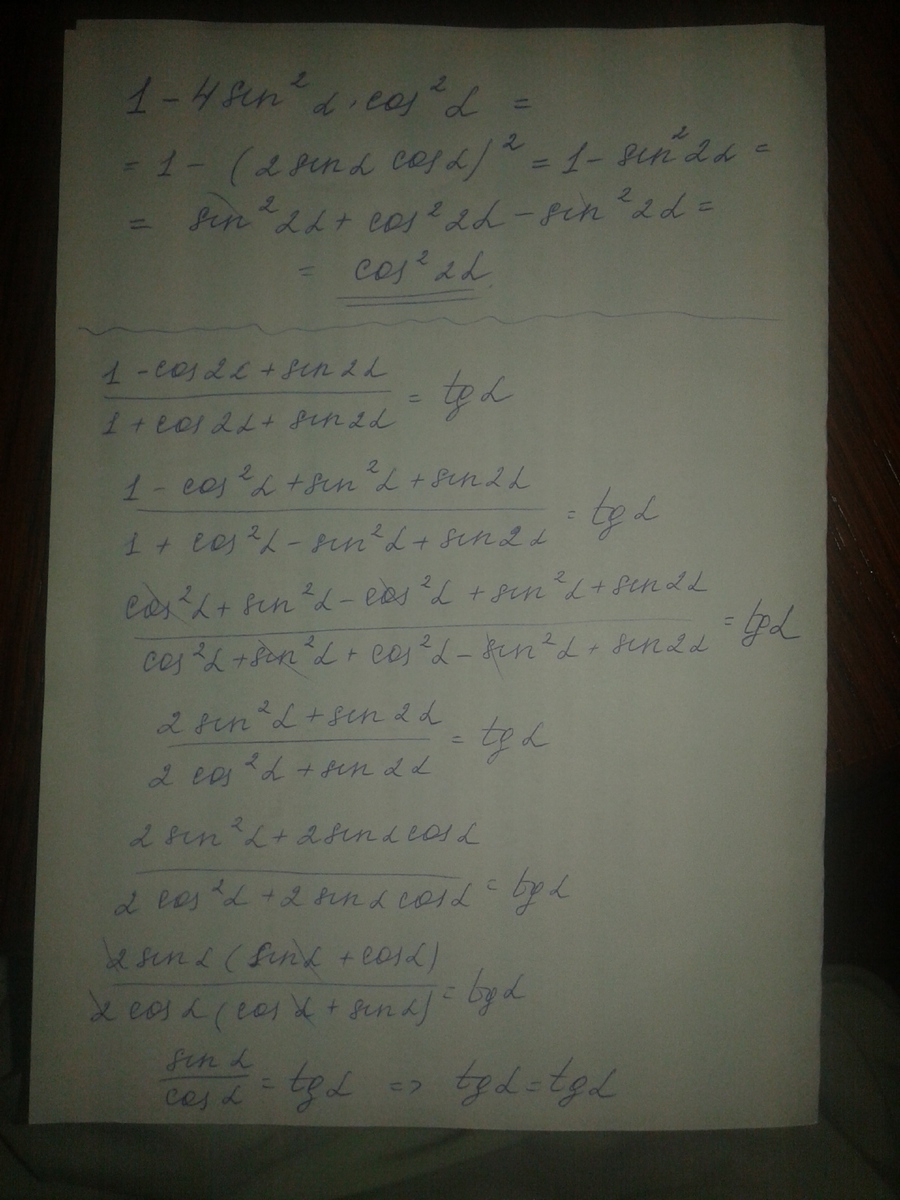 1 - 4 sin² α · cos² α =
= 1 - (2 sin α cos α)² = 1 - sin² 2α =
= sin² 2α + cos² 2α - sin² 2α =
= cos² 2α.
1 - cos 2α + sin 2α
1 + cos 2α + sin 2α = tg α
1 - cos² α + sin² α + sin 2α
1 + cos² α - sin² α + sin 2α = tg α
cos² α + sin² α - cos² α + sin² α + sin 2α
cos² α + sin² α + cos² α - sin² α + sin 2α = tg α
2 sin² α + sin 2α
2 cos² α + sin 2α = tg α
2 sin² α + 2 sin α cos α
2 cos² α + 2 sin α cos α = tg α
2 sin α (sin α + cos α)
2 cos α (cos α + sin α) = tg α
sin α
cos α = tg α => tg α = tg α